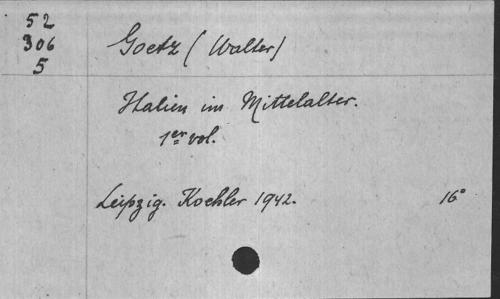 52
306
5
Goetz (Walter)
Italien im Mittelalter.
1er vol.
Leipzig. Koehler 1942. 16°